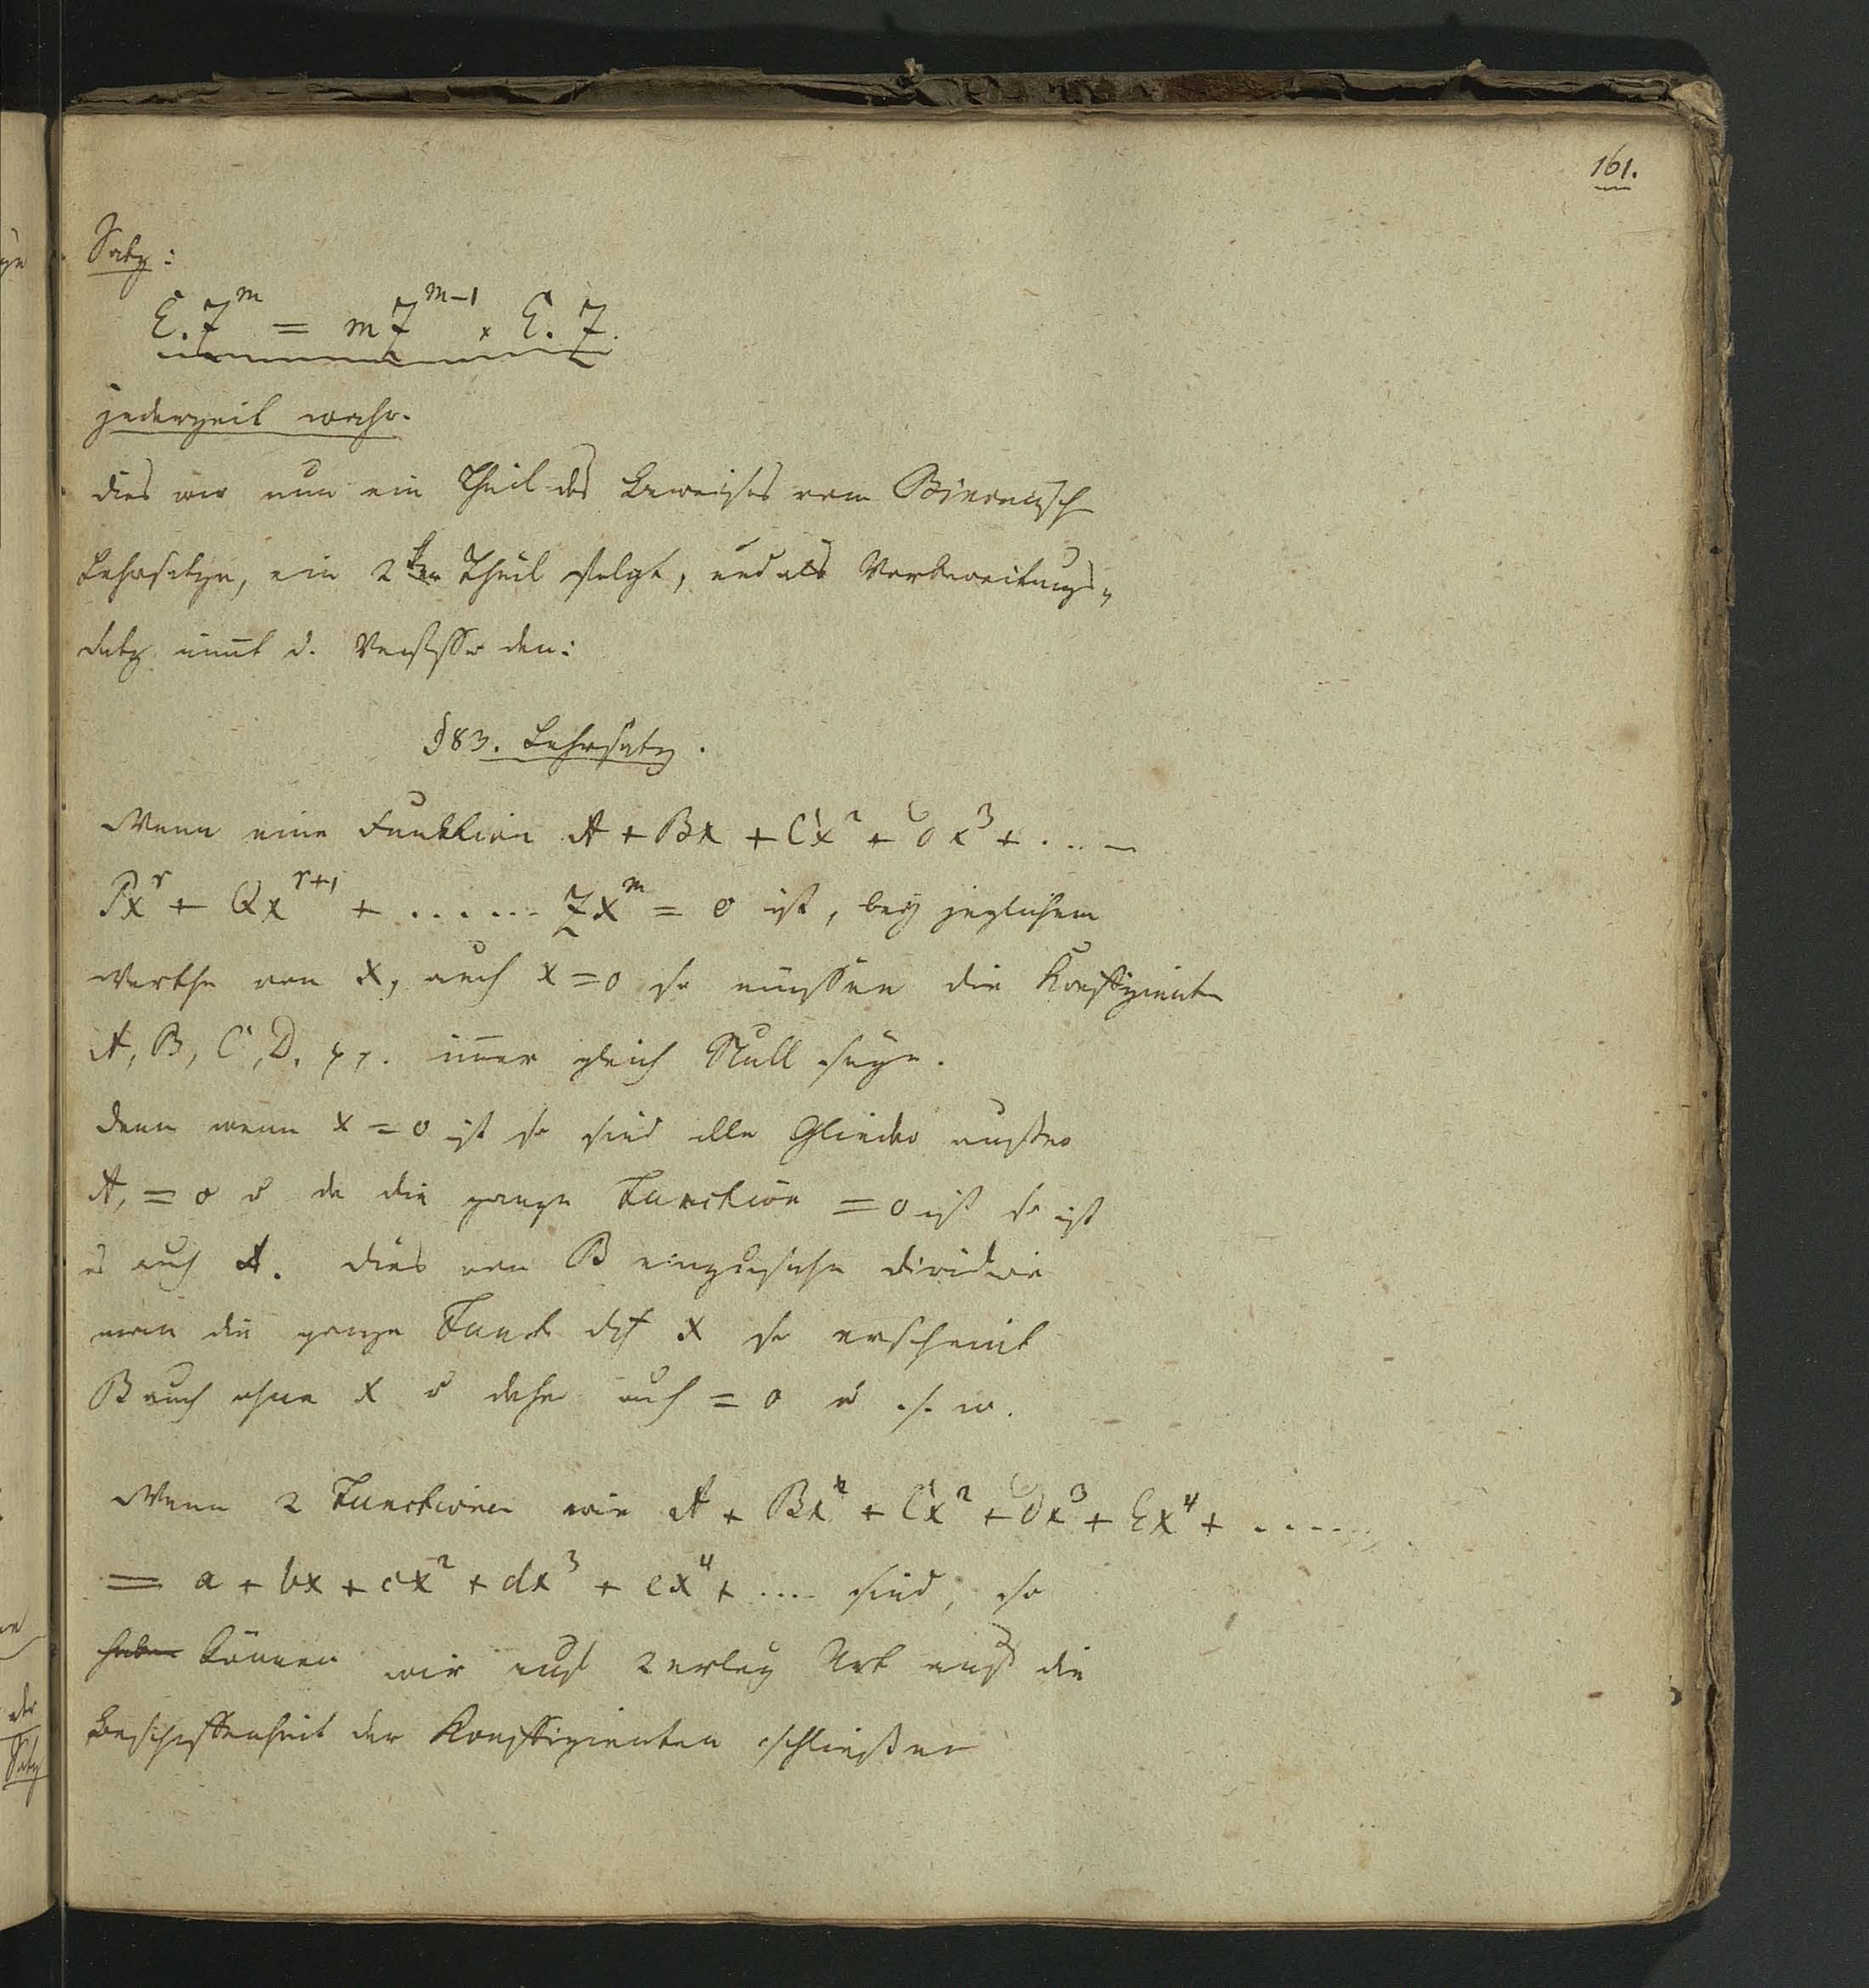 161.
Satz:
E. Z^m = m Z^{m-1} × E. Z.
jederzeit wahr.
dies war nun ein Theil des Beweises vom Binomisch
Lehrsatze, ein 2ter Theil folgt, und als Vorbereitungs„
satz nimt d. Verfasser den:
§83. Lehrsatz.
Wenn eine Funktion A + Bx + Cx² + Dx³ + ....
Px^r + Qx^{r+1} + ...... Zx^m = 0 ist, bey jeglichem
Werthe von x, auch x = 0 so müssen die Koeffizienten
A, B, C, D, pp. immer gleich Null seyn.
denn wenn x = 0 ist so sind alle Glieder außer
A, = 0 u da die ganze Function = 0 ist so ist
es auch A. dies von B einzusehn dividire
man die ganze Funct dch x so erscheint
B auch ohne x u daher auch = 0 u s. w.
Wenn 2 Functionen wie A + Bx + Cx² + Dx³ + Ex⁴ + .....
= a + bx + cx² + dx³ + ex⁴ + .... sind, so
haben können wir auf 2erley Art auf die
Beschaffenheit der Koeffizienten schließen
ne
der
Satz